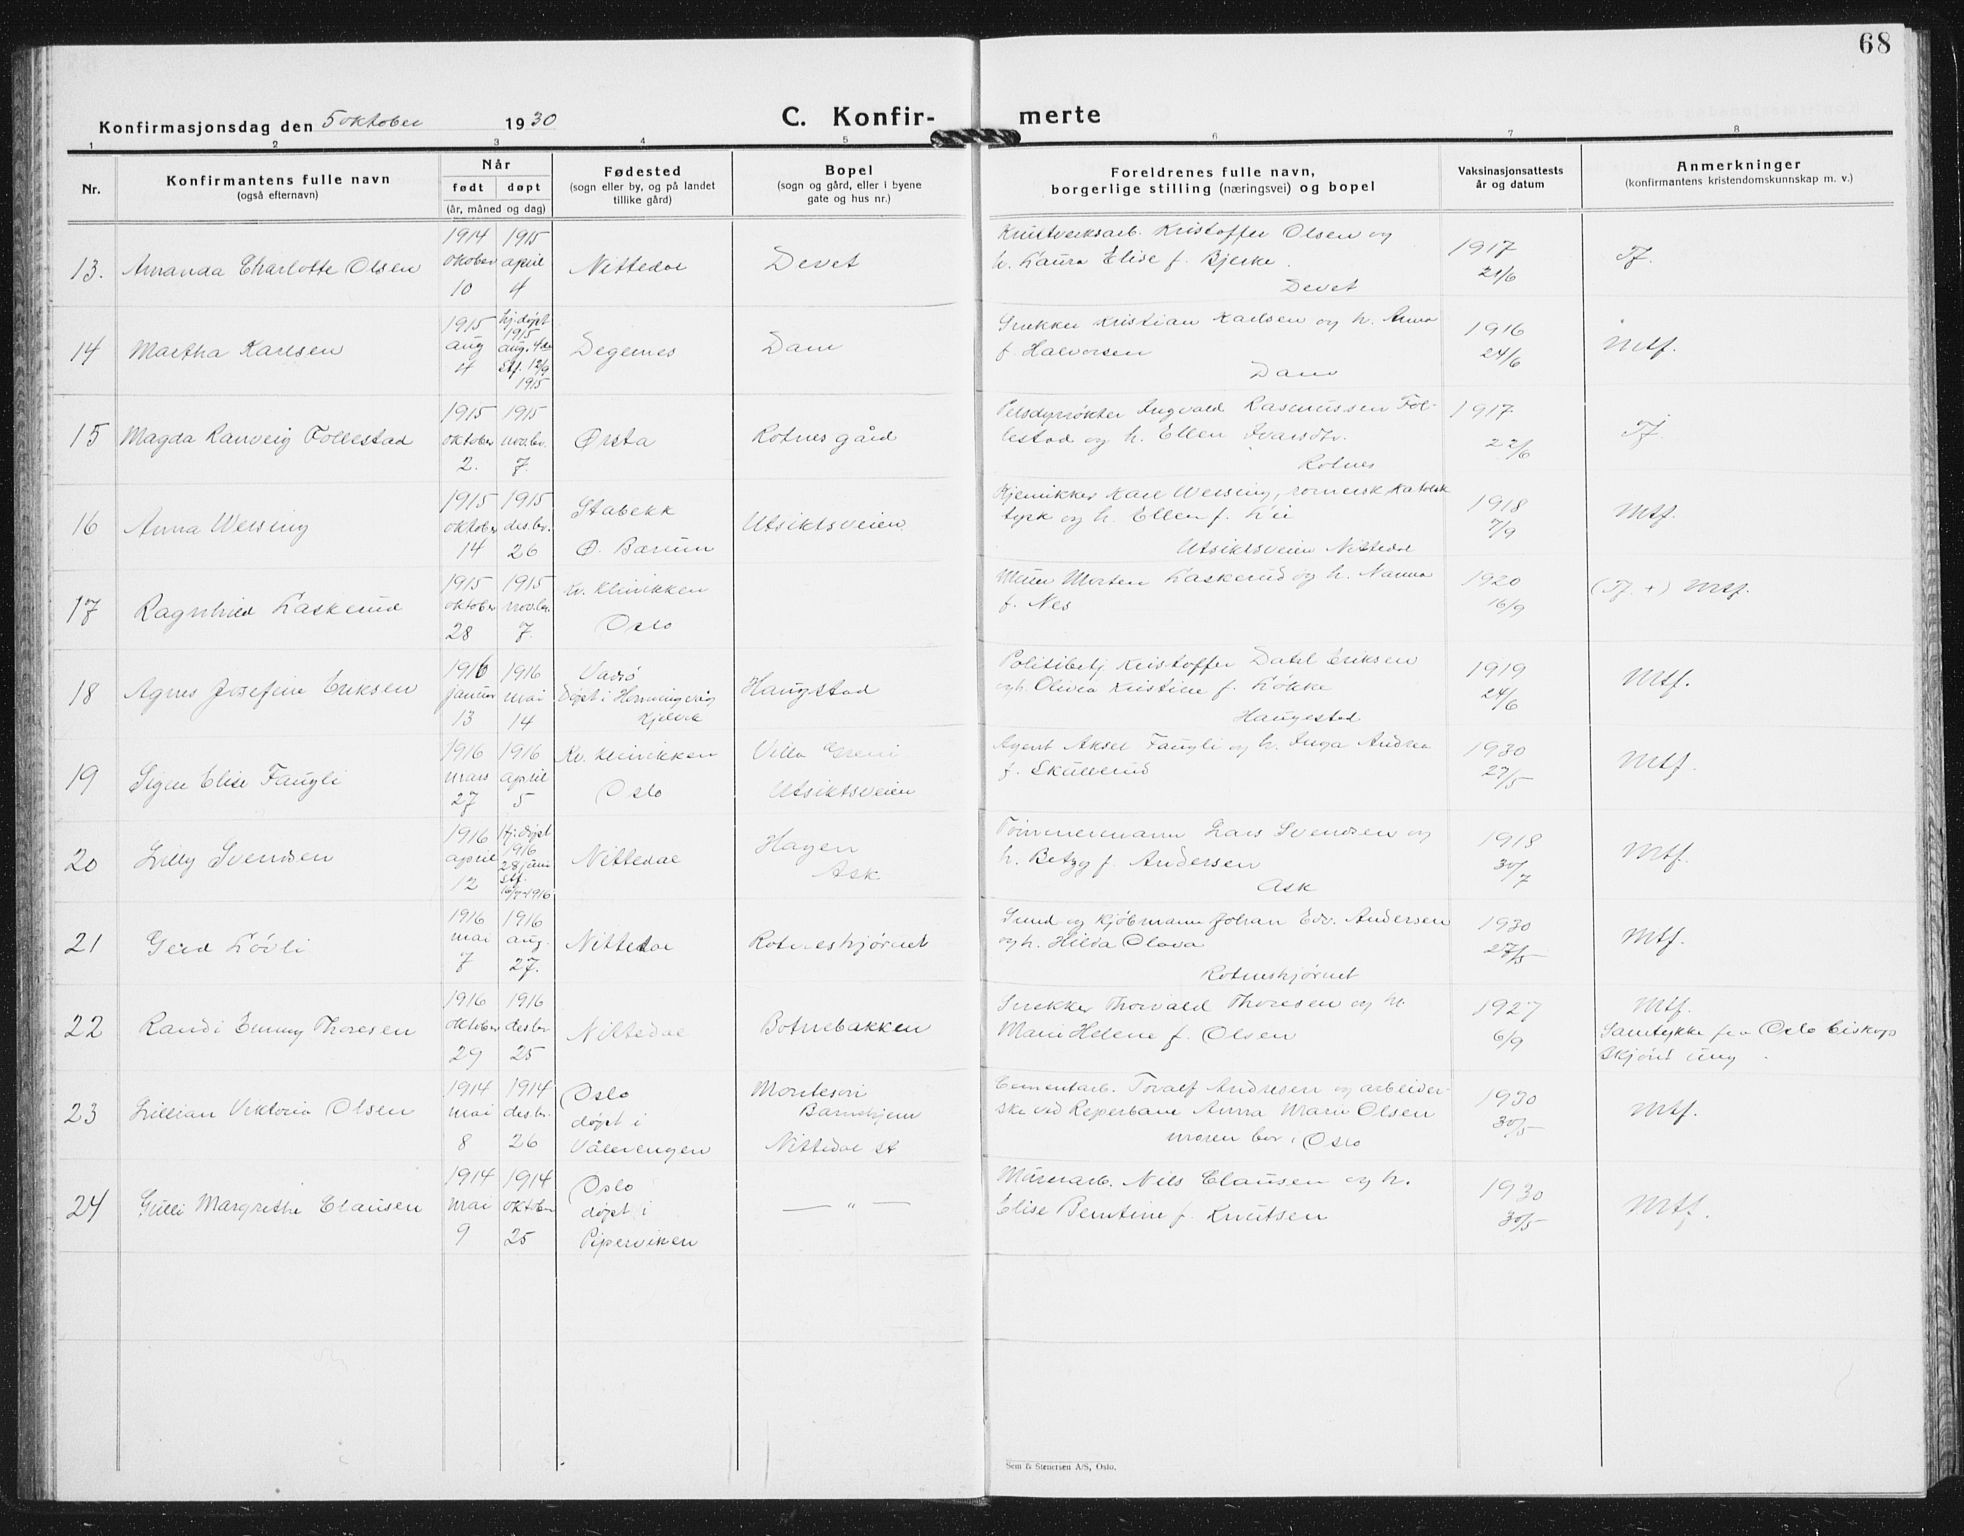 68
Konfirmasjonsdag den 5 oktober 1930
C. Konfir- merte
1 2 3 4 5 6 7 8
Nr.
Konfirmantens fulle navn
(også efternavn)
Når
født døpt
(år, måned og dag)
Fødested
(sogn eller by, og på landet
tillike gård)
Bopel
(sogn og gård, eller i byene
gate og hus nr.)
Foreldrenes fulle navn,
borgerlige stilling (næringsvei) og bopel
Vaksinasjonsattests
år og datum
Anmerkninger
(konfirmantens kristendomskunnskap m. v.)
13. Amanda Charlotte Olsen
1914 oktober 10
1915 april 4
Nittedal
Devet
Krutverksarb. Kristoffer Olsen og
h. Laura Elise f. Bjerke.
Devet
1917
21/6
Tf.
14 Martha Karlsen
1915 aug 4
hj. døpt
1915
aug. 4de
stf. 12/9
1915
Degernes
Dam
Snekker Kristian Karlsen og h. Anna
f. Halvorsen
Dam
1916
24/6
Mtf.
15 Magda Ranveig Follestad
1915 oktober 2.
1915 novbr. 7.
Ørsta
Rotnes gård
Pelsdyrrøkter Ingvald Rasmussen Fol-
lestad og h. Ellen Ivarsdtr.
Rotnes
1917
22/6
Tf
16 Anna Wersing
1915 oktober 14
1915 desbr. 26
Stabekk
Ø. Bærum
Utsiktsveien
Kjemikker Karl Wersing, romersk katolsk
tysk og h. Ellen f. Lei
Utsiktsveien Nittedal
1918
7/9
Mtf.
17 Ragnhild Laskerud
1915 oktober 28
1915 novbr. 7.
kv. klinikken
Oslo
Murer Morten Laskerud og h. Nanna
f. Nes
1920
16/9
(Tf. +) Mtf.
18 Agnes Josefine Eriksen
1916 januar 13
1916 mai 14
Vadsø
Døpt i Henningsvær
Kjelvik
Haugstad
Politibetj Kristoffer Datel Eriksen
og h. Olivia Kristine f. Løkke
Haugestad
1919
24/6
Mtf.
19 Signe Elise Faugli
1916 mars 27
1916 april 5
Kv. klinikken
Oslo
Villa Greni
Utsiktsveien
Agent Aksel Faugli og h. Inga Andrea
f. Skullerud
1930
27/5
Mtf.
20 Lilly Svendsen
1916 april 12
Hj. døpt
1916
28 juni
stf.
1916
Nittedal
Hagen
Ask
Tømmermann Lars Svendsen og
h. Betzy f. Andersen
Ask
1918
30/7
Mtf.
21 Gerd Løvli
1916 mai 7
1916 aug. 27.
Nittedal
Rotneshjørnet
Smed og kjøbmann Johan Edv. Andersen
og h. Hilda Olava
Rotneshjørnet
1930
27/5
Mtf.
22 Randi Emmy Thoresen
1916 oktober 29
1916 desbr 25
Nittedal
Botnebakken
Snekker Thorvald Thoresen og h.
Marie Helene f. Olsen
1927
6/9
Mtf.
Samtykke fra Oslo biskop
skjønt ung.
23 Lillian Viktoria Olsen
1914 mai 8
1914 desbr. 26
Oslo
døpt i
Vålerengen
Montesori
Barnehjem
Nittedal st
Cementarb. Toralf Andresen og arbeider-
ske ved Reperbane Anna Marie Olsen
moren bor i Oslo
1930
30/5
Mtf.
24 Gulli Margrethe Clausen
1914 mai 9
1914 oktober 25
Oslo
døpt i
Piperviken
— " —
Murerarb. Nils Clausen og h.
Elise Berntine f. Knutsen
1930
30/5
Mtf.
Sem & Stenersen A/S, Oslo.